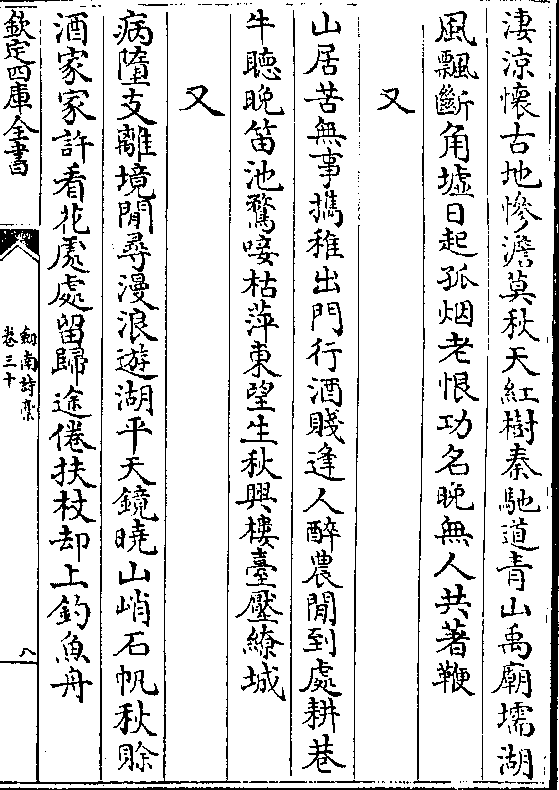 淒涼懷古地慘澹莫秋天紅樹秦馳道青山禹廟壖湖
風飄斷角墟日起孤烟老恨功名晚無人共著鞭
又
山居苦無事攜稚出門行酒賤逢人醉農閒到處耕巷
牛聽晚笛池鶩唼枯萍東望生秋興樓臺壓繚城
又
病墮支離境閒尋漫浪遊湖平天鏡曉山峭石帆秋賒
酒家家許看花處處留歸途倦扶杖却上釣魚舟
欽定四庫全書
劍南詩稾
卷三十
八